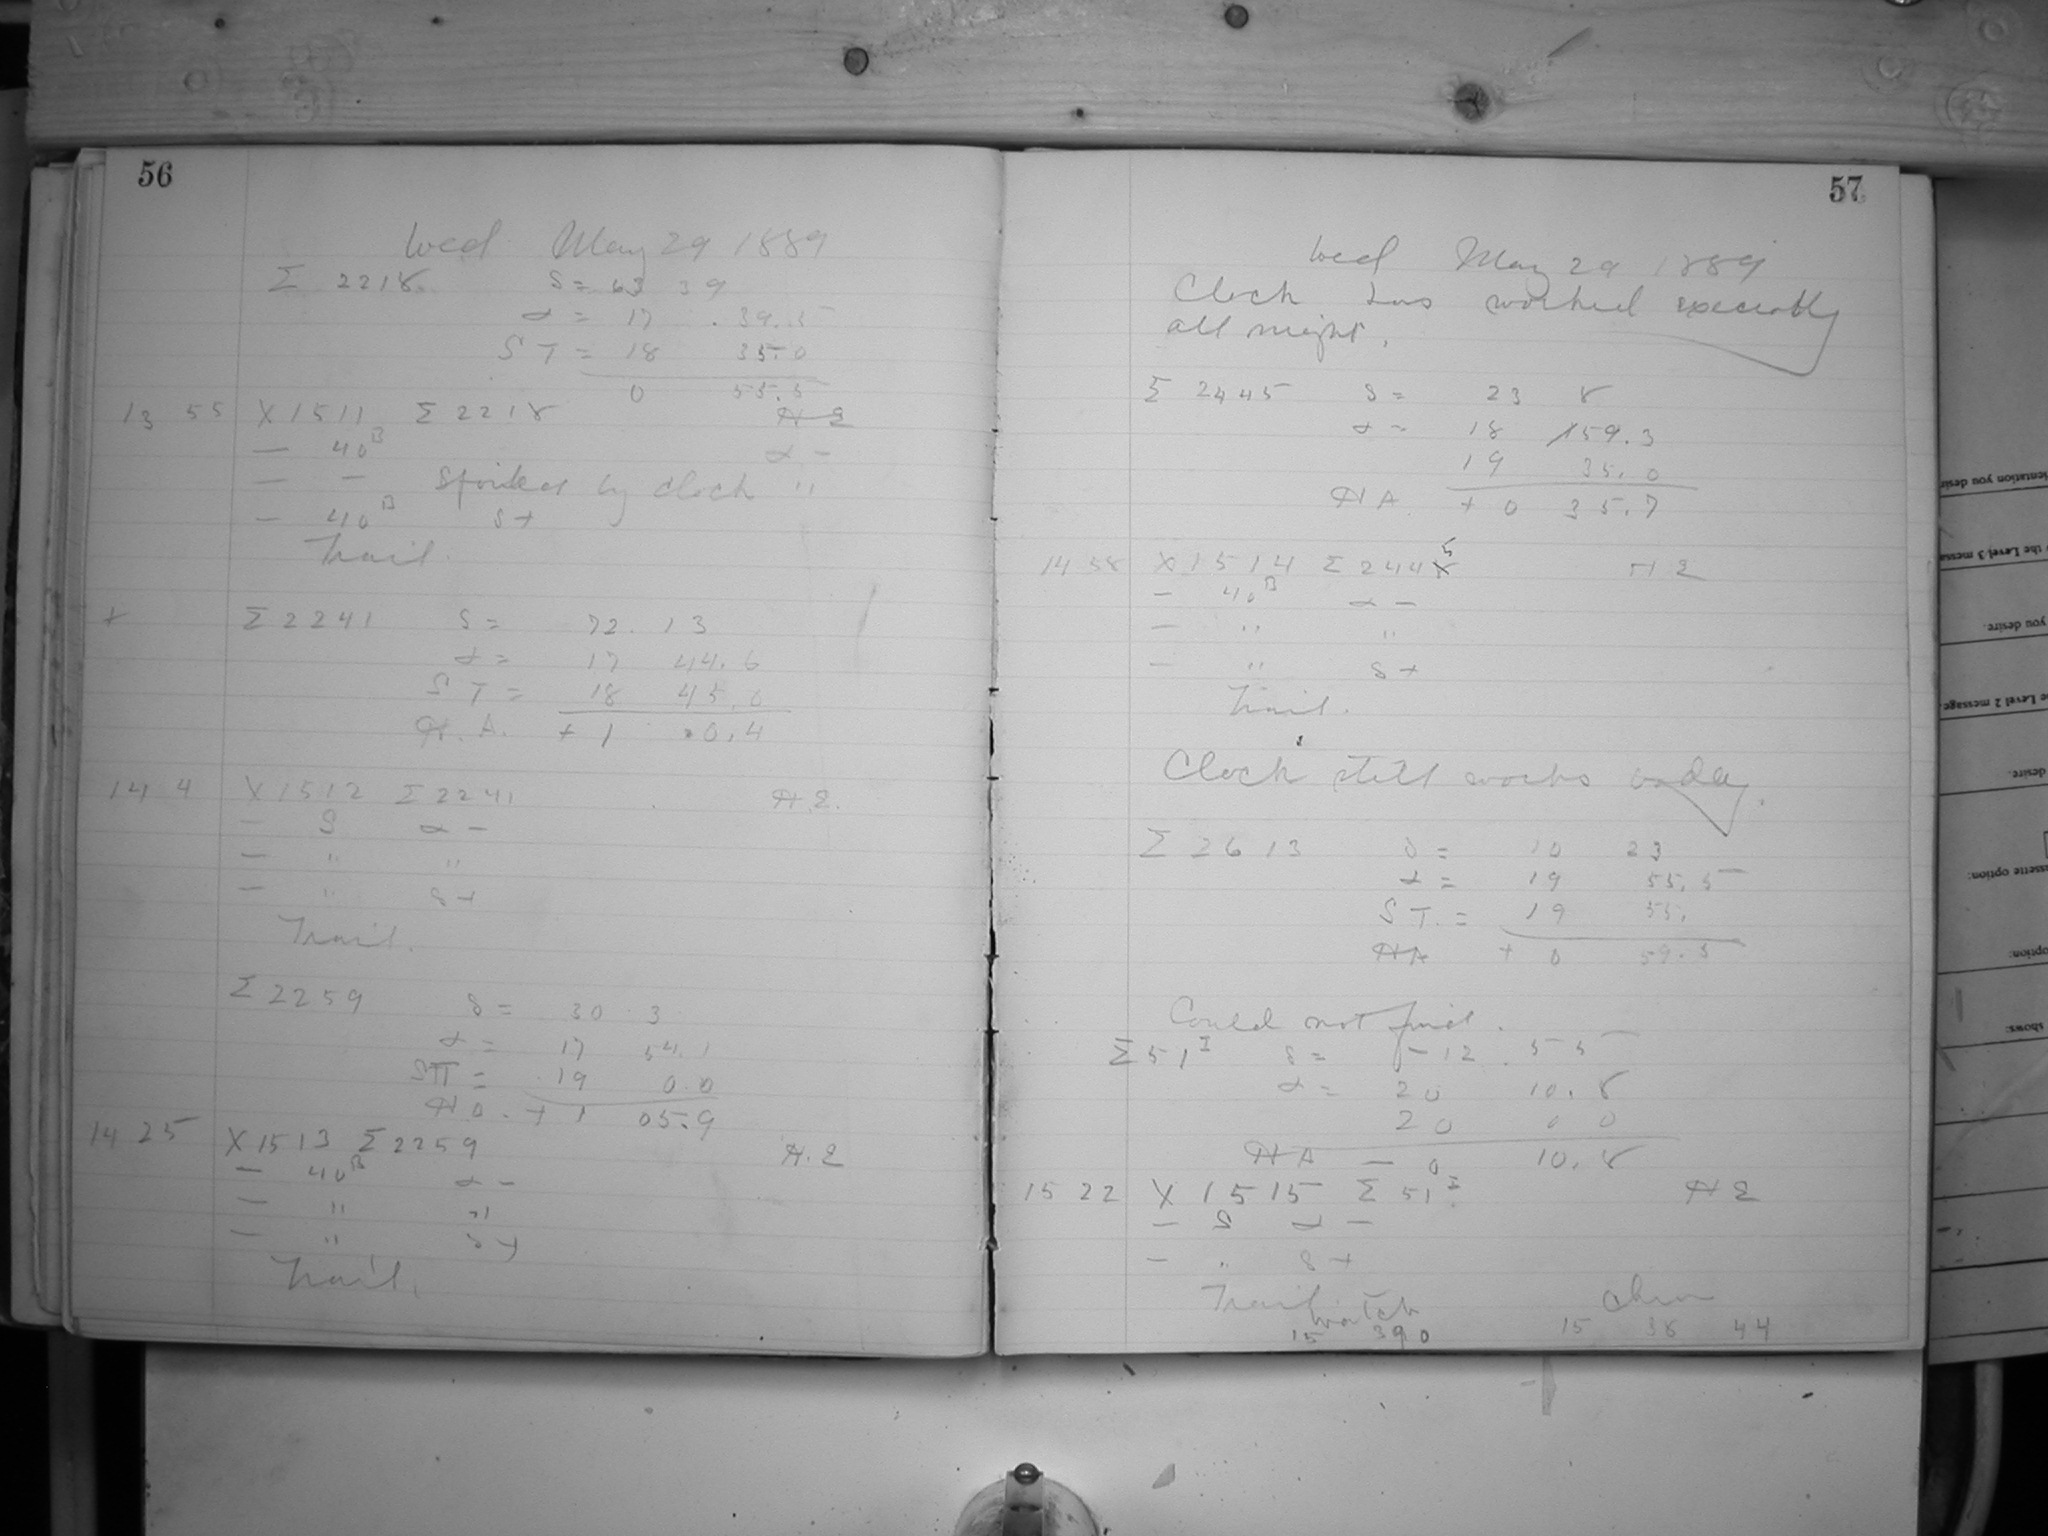 56
Wed May 29 1889
Σ 2218. δ = 63 39
α = 17 . 39.5
S T = 18 35.0
0 55.5
13 55 X 1511 Σ 2218 H E
— 40 B α —
— — Spoiled by clock "
— 40 B δ +
Trail.
+ Σ 2241 δ = 72. 13
α = 17 44.6
S T = 18 45.0
H. A. + 1 0.4
14 4 X 1512 Σ 2241 H E.
— S α —
— " "
— " δ +
Trail.
Σ 2259 δ = 30 3
α = 17 54.1
ST = 19 0.0
H A. + 1 05.9
14 25 X 1513 Σ 2259 H. E
— 40 B α —
— " "
— " δ +
Trail.
57
Wed May 29 1889
Clock has worked execrably
all night.
Σ 2445 δ = 23 8
α = 18 59.3
19 35.0
H A. + 0 35.7
14 58 X 1514 Σ 2445 H E
— 40 B α —
— " "
— " δ +
Trail.
Clock still works badly.
Σ 2613 δ = 10 23
α = 19 55.5
S T. = 19 55.
H A + 0 59.5
Could not find.
Σ 51 I δ = — 12 . 55
α = 20 10.8
20 0 0
H A — 0 10.8
15 22 X 1515 Σ 51 I H E
— S α —
— " δ +
Trail
Watch Chron
15 39 0 15 38 44